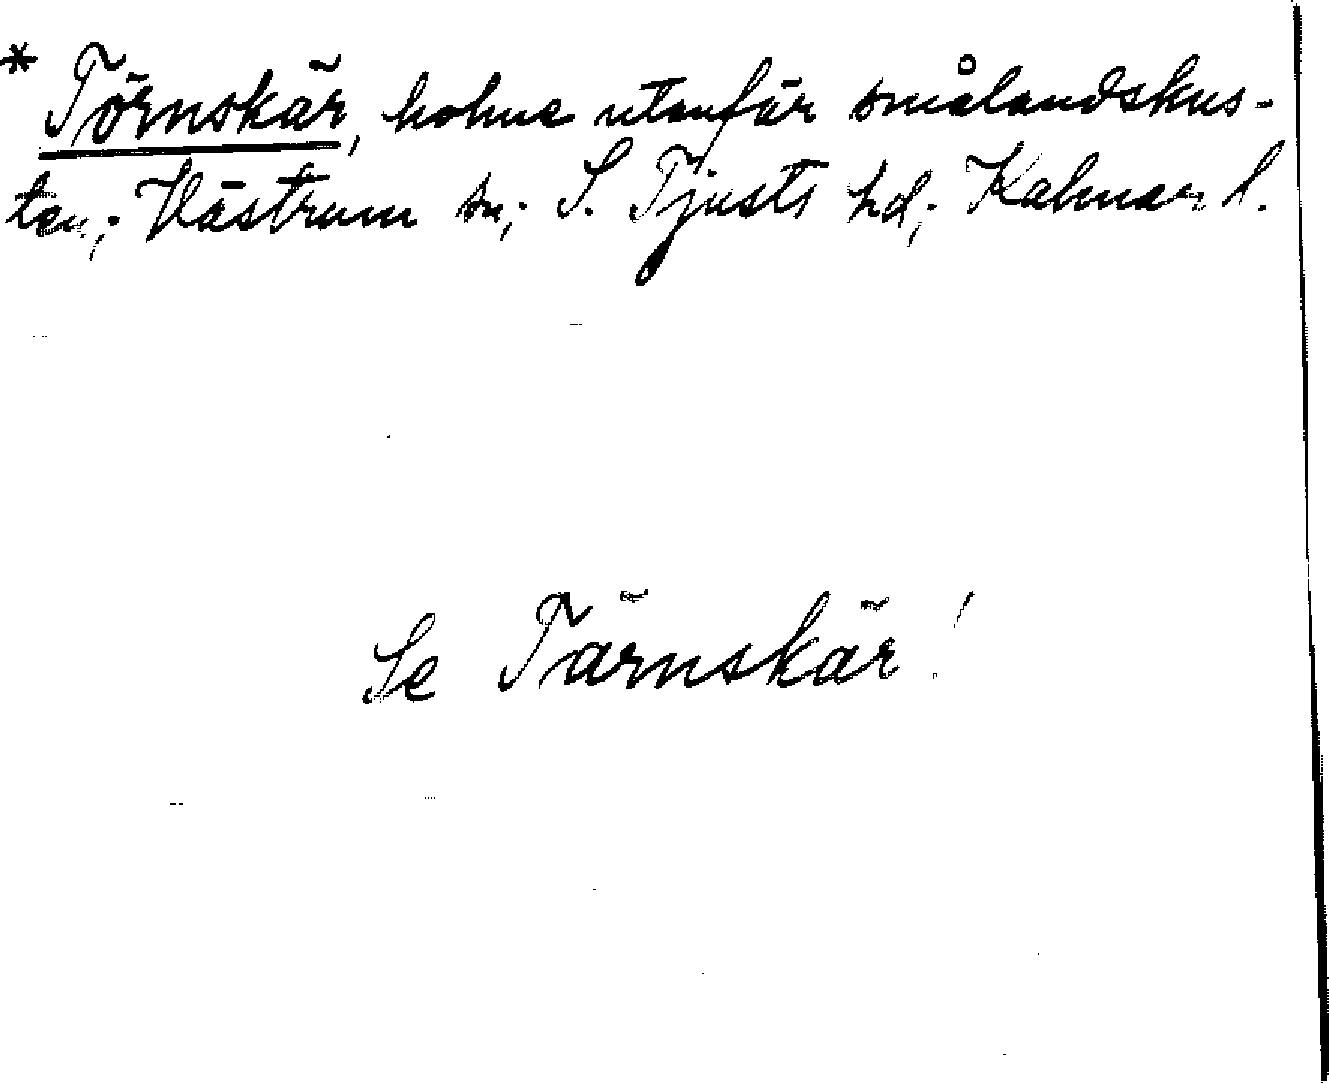 * Törnskär, holme utanför smålandskus-
ten; Västrum sn; S. Tjusts hd; Kalmar l.
Se Tärnskär!